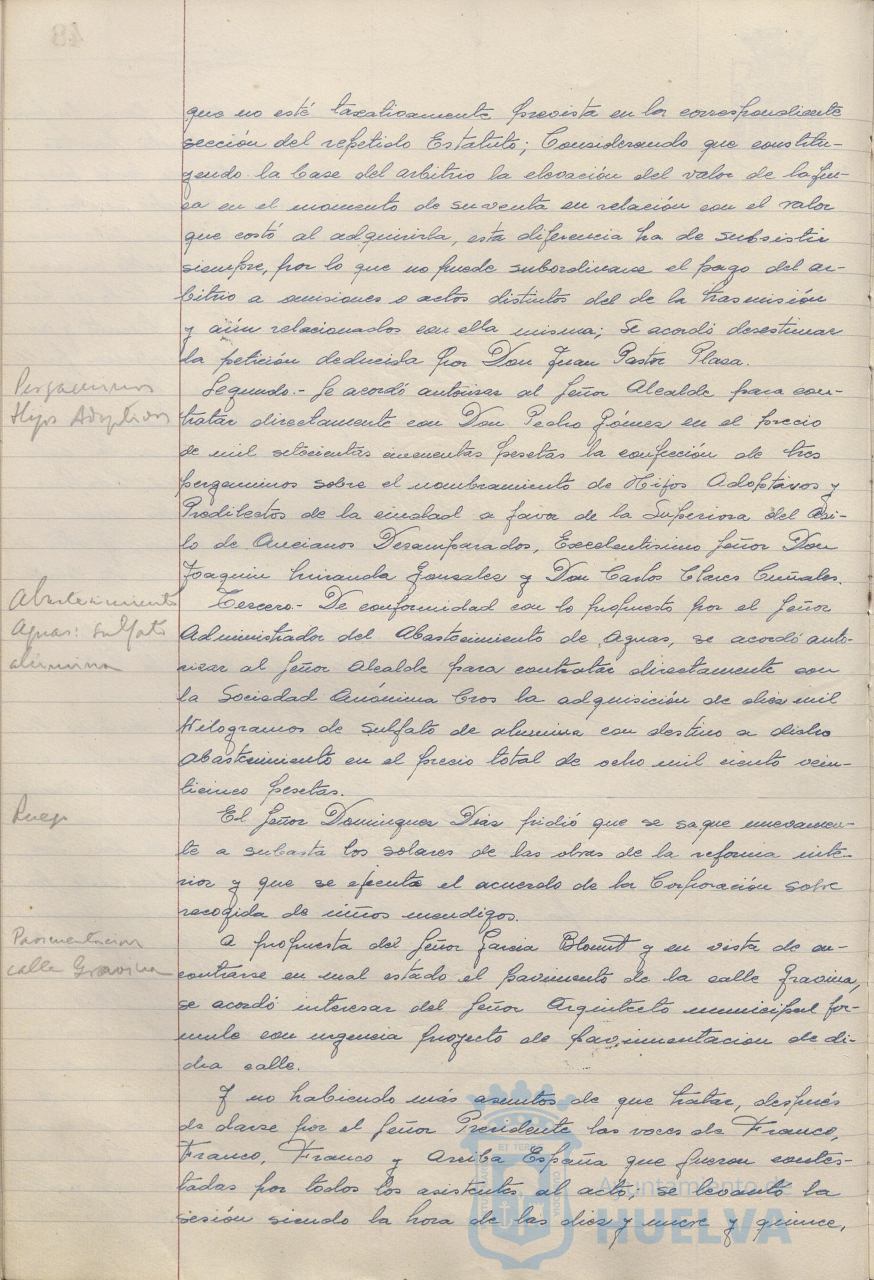 que no esté taxativamente prevista en la correspondiente
sección del repetido Estatuto; Considerando que constitu-
yendo la base del arbitrio la elevación del valor de la fin-
ca en el momento de su venta en relación con el valor
que costó al adquirirla, esta diferencia ha de subsistir
siempre, por lo que no puede subordinarse el pago del ar-
bitrio a omisiones o actos distintos del de la trasmisión
y aún relacionados con ella misma; Se acordó desestimar
la petición deducida por Don Juan Pastor Plaza.
Pergaminos
Hijos Adoptivos
Segundo.- Se acordó autorizar al Señor Alcalde para con-
tratar directamente con Don Pedro Gómez en el precio
de mil setecientas cincuentas pesetas la confección de tres
pergaminos sobre el nombramiento de Hijos Adoptivos y
Predilectos de la ciudad a favor de la Superiora del Asi-
lo de Ancianos Desamparados, Excelentísimo Señor Don
Joaquin Miranda Gonzalez y Don Carlos Clares Cuñales.
Abastecimiento
Aguas: sulfato
alúmina
Tercero.- De conformidad con lo propuesto por el Señor
Administrador del Abastecimiento de Aguas, se acordó auto-
rizar al Señor Alcalde para contratar directamente con
la Sociedad Anónima Cros la adquisición de diez mil
Kilogramos de sulfato de alumina con destino a dicho
Abastecimiento en el precio total de ocho mil ciento vein-
ticinco pesetas.
Ruego
El Señor Dominguez Diaz pidió que se saque nuevamen-
te a subasta los solares de las obras de la reforma inte-
rior y que se ejecute el acuerdo de la Corporación sobre
recogida de niños mendigos.
Pavimentacion
calle Gravina
A propuesta del Señor Garcia Blount y en vista de en-
contrarse en mal estado el pavimento de la calle Gravina,
se acordó interesar del Señor Arquitecto municipal for-
mule con urgencia proyecto de pavimentacion de di-
cha calle.
Y no habiendo más asuntos de que tratar, después
de darse por el Señor Presidente las voces de Franco,
Franco, Franco y Arriba España que fueron contes-
tadas por todos los asistentes al acto, se levantó la
sesión siendo la hora de las diez y nueve y quince,
Ayuntamiento de
HUELVA